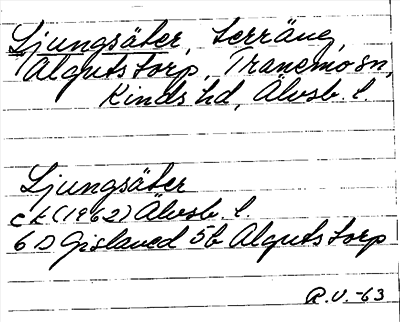 Ljungsåker, terräng,
Algutstorp, Tranemo sn,
Kinds hd, Älvsb. l.
Ljungsåker
ek (1962) Älvsb. l.
6 D Gislaved 5b Algutstorp
R.V.-63